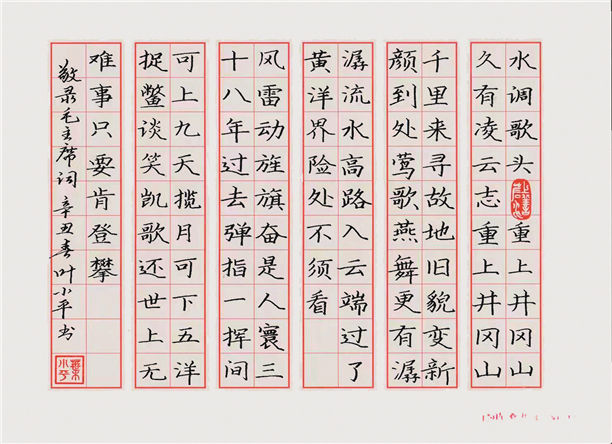 水调歌头 重上井冈山
久有凌云志重上井冈山
千里来寻故地旧貌变新
颜到处莺歌燕舞更有潺
潺流水高路入云端过了
黄洋界险处不须看
风雷动旌旗奋是人寰三
十八年过去弹指一挥间
可上九天揽月可下五洋
捉鳖谈笑凯歌还世上无
难事只要肯登攀
敬录毛主席词 辛丑春叶小平书
葉小平